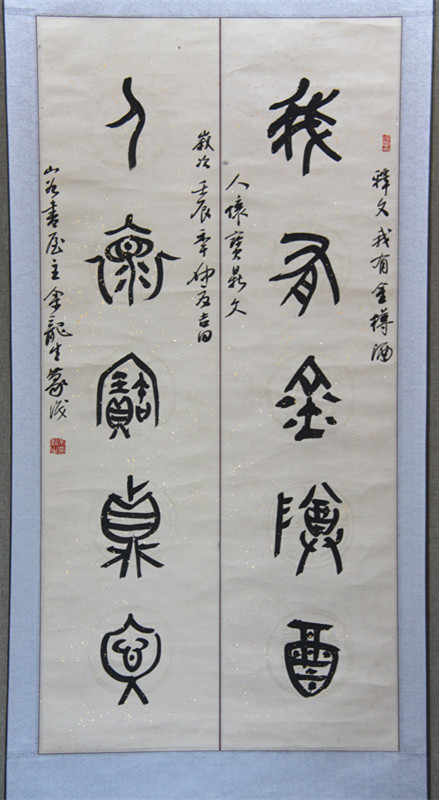 釋文我有金樽酒
我有金樽酒
人懷寶鼎文
歲次壬辰年仲夏吉日
人懷寶鼎文
山谷書屋主余龍生篆